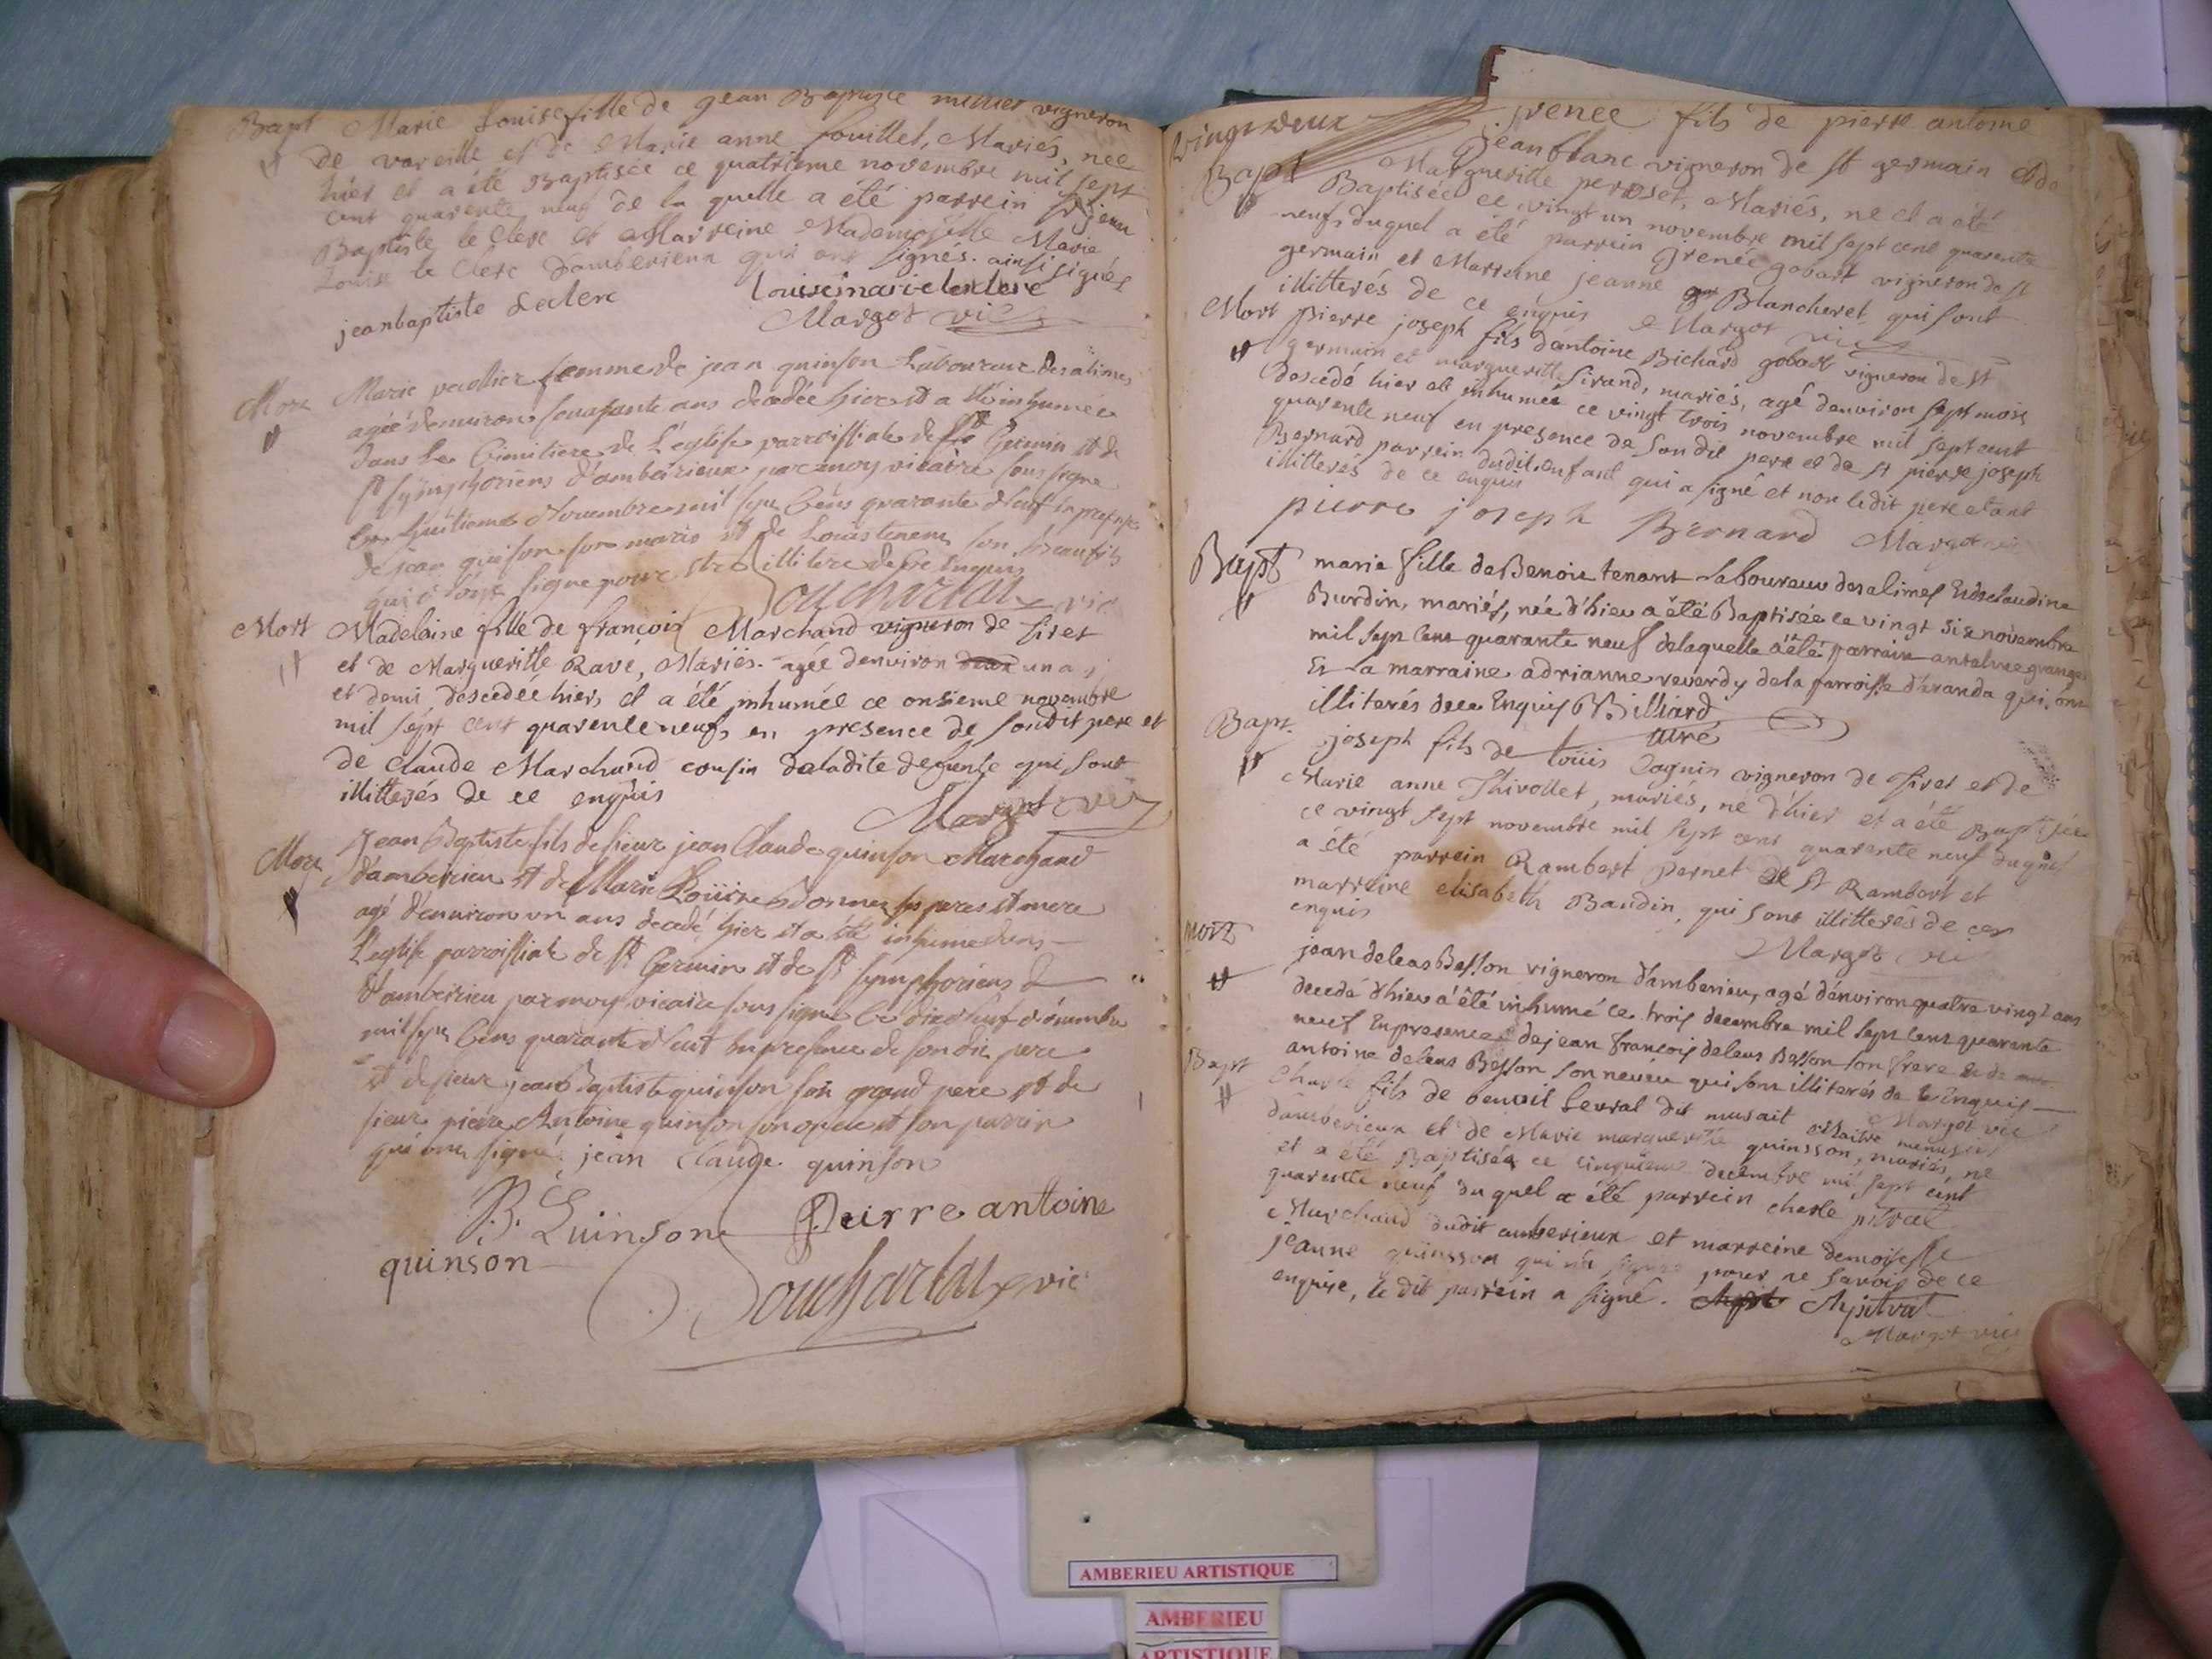 Bapt Marie Louise fille de gean Baptiste vigneron
de vareille et de Marie anne fouillet, Mariés, née
hier et a été Baptisée ce quatrieme novembre mil sept
cent quarente neuf de la quelle a été parrein Sr jean
Baptiste le Clerc et Marreine Mademoiselle Marie
Louise le Clerc d'amberieux qui ont signés. ainsi signés
jeanbaptiste Leclerc Louise marie leclerc
Margot vic
Mort Marie femme de jean quinson Laboureur des alimes
agée denuiron soixante ans decedée hier et a été inhumée
dans Le Cimitiere de L'eglise parroissiale de St Germin et de
St symphoriens d'amberieux par moy vicaire sous signe
Ce huitieme Nouembre mil sept Cens quarante Neuf en presence
de jean quinson son maris et de Louis tenem son beau fils
qui n'ont signe pour etre illitere de ce enquis
vic
Mort Madelaine fille de françois Marchand vigneron de tiret
et de Margueritte Ravé, Mariés. agée denviron deux un an
et demi descedée hier, et a été inhumée ce onsieme novembre
mil sept cent quarente neufs en presence de son dit pere et
de Claude Marchand cousin de ladite defunte qui sont
illitterés de ce enquis
Margot vic
Mort Jean Baptiste fils de sieur jean Claude quinson Marchand
d'amberieu et de Marie Louise ses peres et mere
agé d'enuiron un ans decedé hier et a été inhume dans
L'eglise parroissiale de St Germin et de St symphoriens
d'amberieu par moy vicaire sous signe Ce dix Neuf Nouembre
mil sept Cens quarante Neuf en presence de son dit pere
et de sieur jean Baptiste quinson son grand pere et de
sieur pierre Antoine quinson son oncle et son parrin
qui ont signé jean Claude quinson
B. Quinson Peirre antoine
quinson
vic
vingt deux
Bapt jrenee fils de pierre antoine
jeanblanc vigneron de St germain et de
Margueritte perroset, Mariés, ne et a été
Baptisée ce vingt un novembre mil sept cent quarente
neufs duquel a été parrein jrenée gobart vigneron de st
germain et Marreine jeanne Blancheret qui sont
illitterés de ce enquis Margot vic
Mort Pierre joseph fils d'antoine Bichard gobart vigneron de St
germain et margueritte Sirand, mariés, agé denviron sept mois
descedé hier et inhumée ce vingt trois novembre mil sept cent
quarente neuf en presence de son dit pere et de Sr pierre joseph
Bernard parrein dudit enfant qui a signé et non ledit pere etant
illitterés de ce enquis
pierre joseph Bernard Margot vic
Bapt marie fille de Benoit tenant Laboureur des alimes et de claudine
Burdin, mariés, née d'hier a été Baptisée le vingt six novembre
mil sept cent quarante neuf de laquelle a été parrain antelme grange
Et la marraine adrianne reverdy de la parroisse d'aranda qui sont
illiterés de ce Enquis Billiard
curé
Bapt. joseph fils de loüis Cognin vigneron de tiret et de
Marie anne Thivollet, mariés, né d'hier et a été Baptisée
ce vingt sept novembre mil sept cent quarente neuf duquel
a été parrein Rambert pernet de St Rambert et
marreine elisabeth Baudin, qui sont illitterés de ce
enquis
Margot vic
mort jean deleas Besson vigneron d'amberieu, agé d'environ quatre vingt ans
decedé d'hier a été inhumé ce trois decembre mil sept cent quarante
neuf En presence de jean françois deleas Besson son frere et de
antoine deleas Besson son neveu qui sont illiterés de ce Enquis
Margot vic
Bapt Charle fils de benoit Levrat dit musait Maitre menusier
d'amberieux et de Marie margueritte quinsson, mariés, ne
et a été Baptisée ce cinquieme decembre mil sept cent
quarente neuf du quel a été parrein charle pitrat
Marchand dudit amberieux et marreine demoiselle
jeanne quinsson qui n'a signée pour ne savoir de ce
enquise, le dit parrein a signé. Chpitrat
Margot vic
AMBERIEU ARTISTIQUE
AMBERIEU
ARTISTIQUE